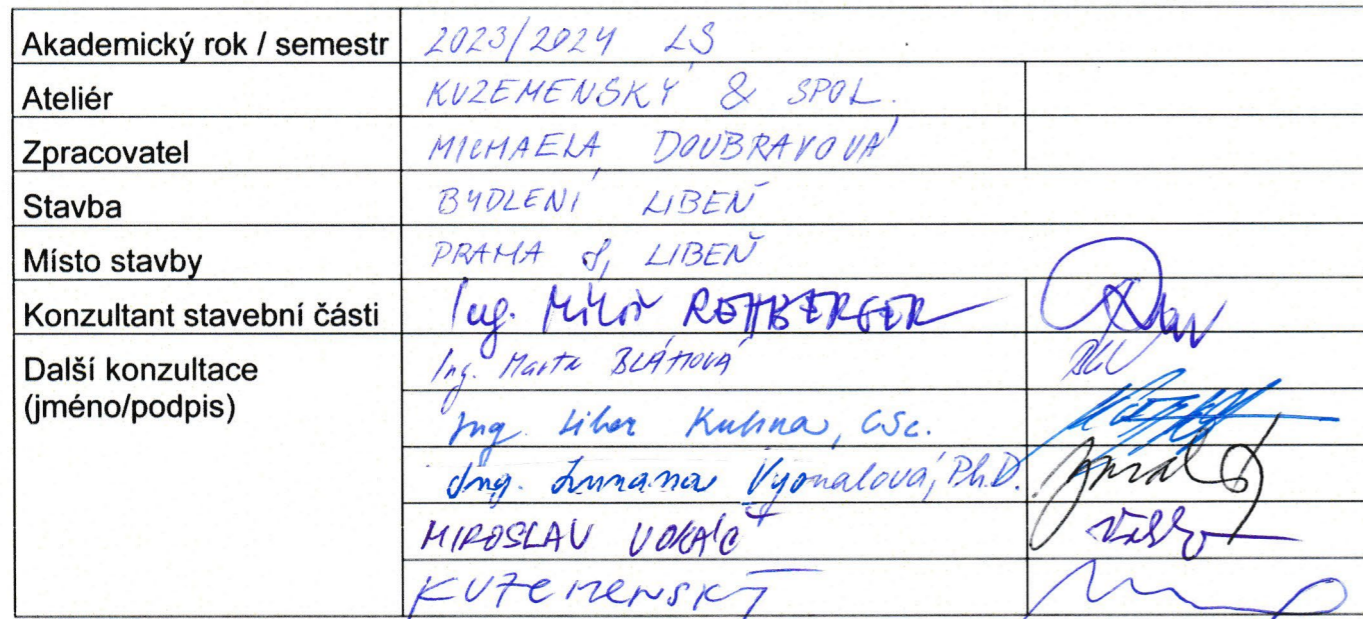 Akademický rok / semestr 2023/2024 LS
Ateliér KUZEMENSKÝ & SPOL.
Zpracovatel MICHAELA DOUBRAVOVÁ
Stavba BYDLENÍ LIBEŇ
Místo stavby PRAHA 8, LIBEŇ
Konzultant stavební části Ing. Miloš REHBERGER
Další konzultace Ing. Marta BLÁHOVÁ
(jméno/podpis)
Ing. Libor Kubina, CSc.
Ing. Zuzana Vyoralová, Ph.D.
MIROSLAV VOKÁČ
KUZEMENSKÝ